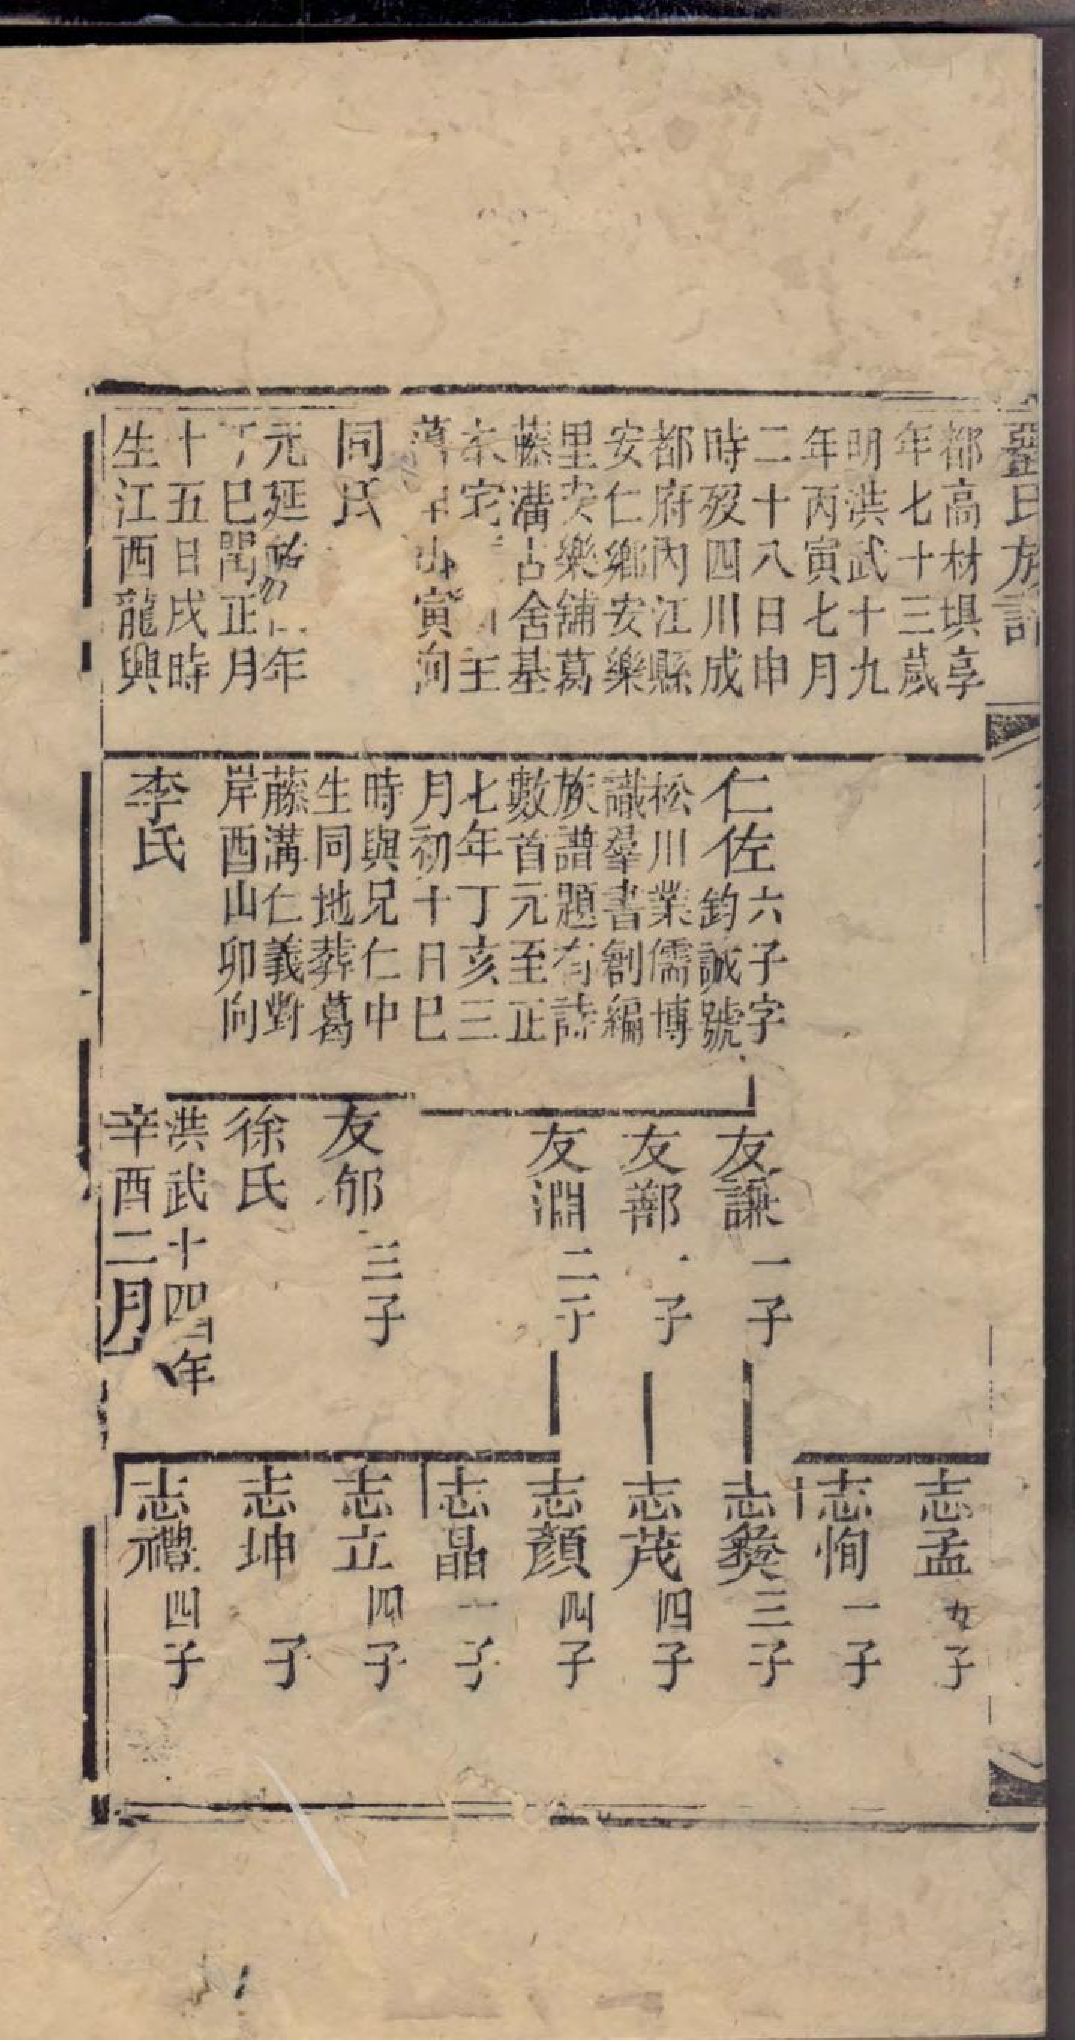 氏族譜
都高材俱享
年七十三歲
明洪武十九
年丙寅七月
二十八日申
時歿四川成
都府內江縣
安仁鄉安樂
里安樂舖葛
藤溝占舍基
宅主
山寅向
同氏
元延祐年
巳閏正月
十五日戌時
生江西龍興
仁佐六子字
鈞誠號
松川業儒博
識羣書創編
族譜題有詩
數首元至正
七年丁亥三
月初十日巳
時與兄仁中
生同地葬葛
藤溝仁義對
岸酉山卯向
李氏
友謙一子
友鄯子
友淵二子
友郇三子
徐氏
洪武十四年
辛酉二月
志孟九子
志恂一子
志彝三子
志茂四子
志顏四子
志晶一子
志立四子
志坤子
志禮四子